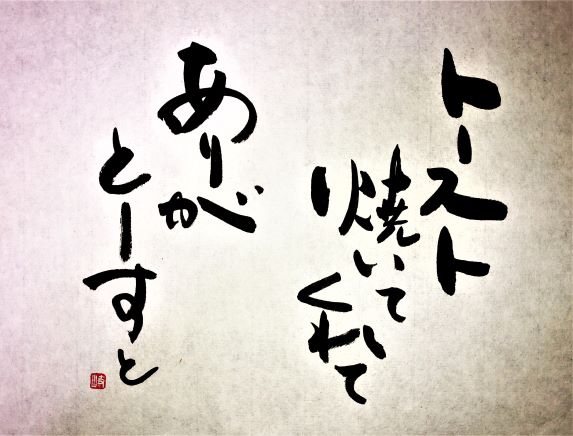 トースト
焼いて
くれて
ありが
とーすと